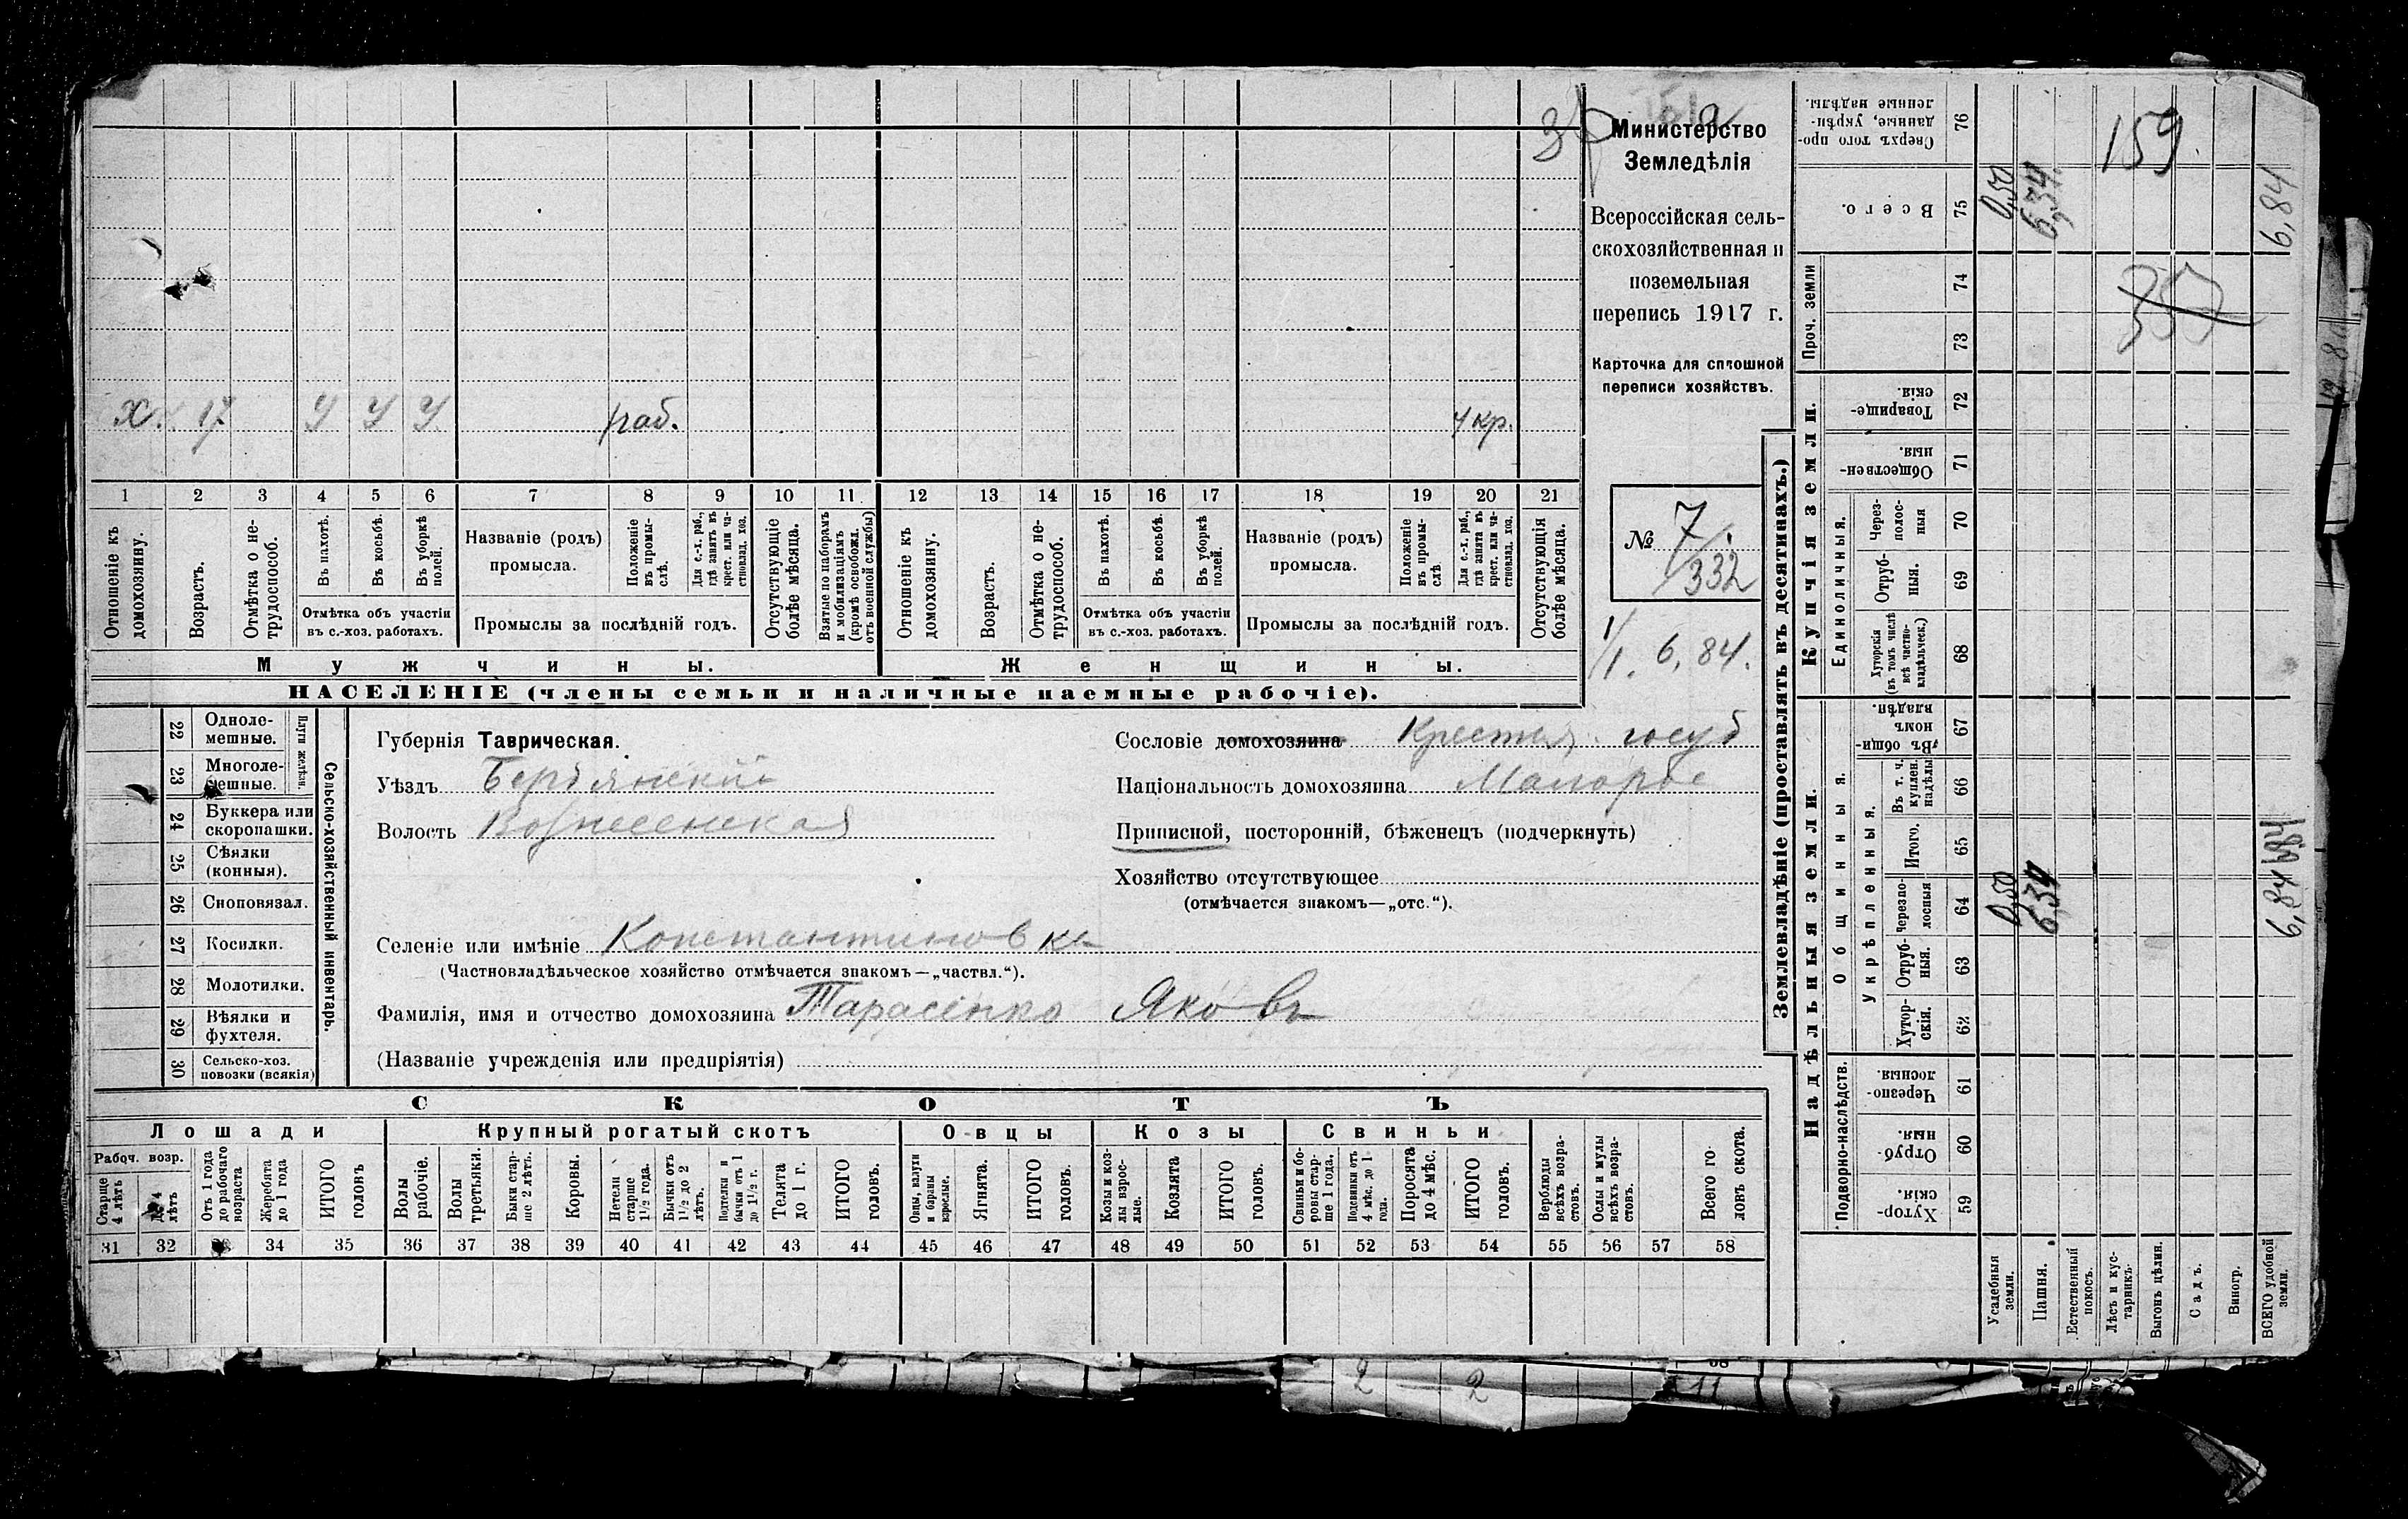 159.
Министерство
Земледѣлія
Всероссійская сель-
скохозяйственная и
поземельная
перепись 1917 г.
Карточка для сплошной
переписи хозяйствъ.
№ 7.
332
1/1. 6,84.
х. 17 У У У раб. укр.
1 2 3 4 5 6 7 8 9 10 11 12 13 14 15 16 17 18 19 20 21
Отношеніе къ домохозяину.
Возрастъ.
Отмѣтка о не-трудоспособ.
Въ пахотѣ.
Въ косьбѣ.
Въ уборкѣ полей.
Отмѣтка объ участіи
въ с.-хоз. работахъ.
Названіе (родъ)
промысла.
Положеніе въ промы-слѣ.
Для с.-х. раб., гдѣ занятъ въ крест. или ча-стновлад. хоз.
Промыслы за послѣдній годъ.
Отсутствующіе болѣе мѣсяца.
Взятые по наборамъ и мобилизаціямъ (кромѣ освобожд. отъ военной службы)
Отношеніе къ домохозяину.
Возрастъ.
Отмѣтка о не-трудоспособ.
Въ пахотѣ.
Въ косьбѣ.
Въ уборкѣ полей.
Отмѣтка объ участіи
въ с.-хоз. работахъ.
Названіе (родъ)
промысла.
Положеніе въ промы-слѣ
Для с.-х. раб., гдѣ занята въ крест. или ча-стновлад. хоз.
Промыслы за послѣдній годъ.
Отсутствующія болѣе мѣсяца.
Мужчины.
Женщины.
НАСЕЛЕНІЕ (члены семьи и наличные наемные рабочіе).
Сельско-хозяйственный инвентарь.
Плуги желѣзн.
22 Одноле-мешные.
23 Многоле-мешные.
24 Буккера или скоропашки.
25 Сѣялки (конныя).
26 Сноповязал.
27 Косилки.
28 Молотилки.
29 Вѣялки и фухтеля.
30 Сельско-хоз. повозки (всякія)
Губернія Таврическая.
Уѣздъ Бердянскій
Волость Вознесенская
Сословіе домохозяина Крестьян. госуд
Національность домохозяина Малорос
Приписной, посторонній, бѣженецъ (подчеркнуть)
Хозяйство отсутствующее
(отмѣчается знакомъ—„отс.“).
Селеніе или имѣніе Константиновка
(Частновладѣльческое хозяйство отмѣчается знакомъ—„частвл.“).
Фамилія, имя и отчество домохозяина Тарасенко Яковъ
(Названіе учрежденія или предпріятія)
СКОТЪ
Лошади
Крупный рогатый скотъ
Овцы
Козы
Свиньи
Рабоч. возр.
Старше 4 лѣтъ
До 4 лѣтъ
Отъ 1 года до рабочаго возраста
Жеребята до 1 года
ИТОГО головъ
Волы рабочіе.
Волы третьяки.
Быки стар-ше 2 лѣтъ.
Коровы.
Нетели старше 1½ года.
Бычки отъ 1½ до 2 лѣтъ.
Подтелки и бычки отъ 1 до 1½ г.
Телята до 1 г.
ИТОГО головъ.
Овцы, валухи и бараны взрослые.
Ягнята.
ИТОГО головъ.
Козы и коз-лы взрос-лые.
Козлята
ИТОГО головъ.
Свиньи и бо-ровы стар-ше 1 года.
Подсвинки отъ 4 мѣс. до 1 года.
Поросята до 4 мѣс.
ИТОГО головъ.
Верблюды всѣхъ возра-стовъ.
Ослы и мулы всѣхъ возра-стовъ.
Всего го-ловъ скота.
31 32 34 35 36 37 38 39 40 41 42 43 44 45 46 47 48 49 50 51 52 53 54 55 56 57 58
Землевладѣніе (проставлять въ десятинахъ.)
Сверхъ того про-данные, укрѣп-ленные надѣлы. 76
Всего. 75 0,50 6,34. 6,84
Проч. земли 74
73
Купчія земли.
Товарище-скія. 72
Обществен-ныя. 71
Единоличныя.
Через-полос-ныя 70
Отруб-ныя. 69
Хуторскія (въ томъ числѣ всѣ частно-владѣльческ.) 68
Надѣльныя земли.
Общинныя.
Въ общин-номъ владѣн. 67
Укрѣпленныя.
Въ т. ч. куплен. надѣлы 66
Итого. 65
Черезпо-лосныя 64 0,50 6,34 6,84
Отруб-ныя. 63
Хутор-скія. 62
Подворно-наслѣдств.
Черезпо-лосныя. 61
Отруб-ныя. 60
Хутор-скія. 59
Усадебныя земли.
Пашня.
Естественный покосъ.
Лѣсъ и кус-тарникъ.
Выгонъ цѣлин.
Садъ.
Виногр.
ВСЕГО удобной земли.
2 2 11